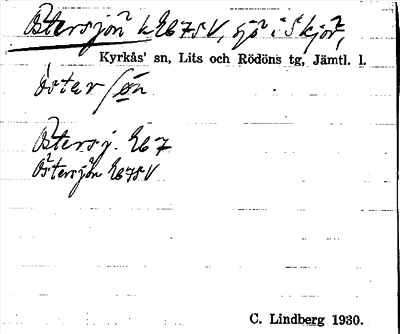 Östersjön k Eb7SV, sjö i Skjör,
Kyrkås' sn, Lits och Rödöns tg, Jämtl. l.
östar
Östersj. Eb7
Östersjön Eb7SV
C. Lindberg 1930.